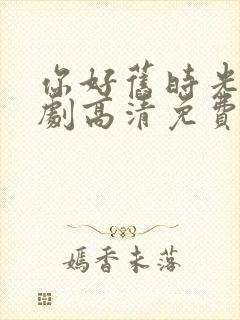 你好舊時光
劇高清免費
嫣香未落